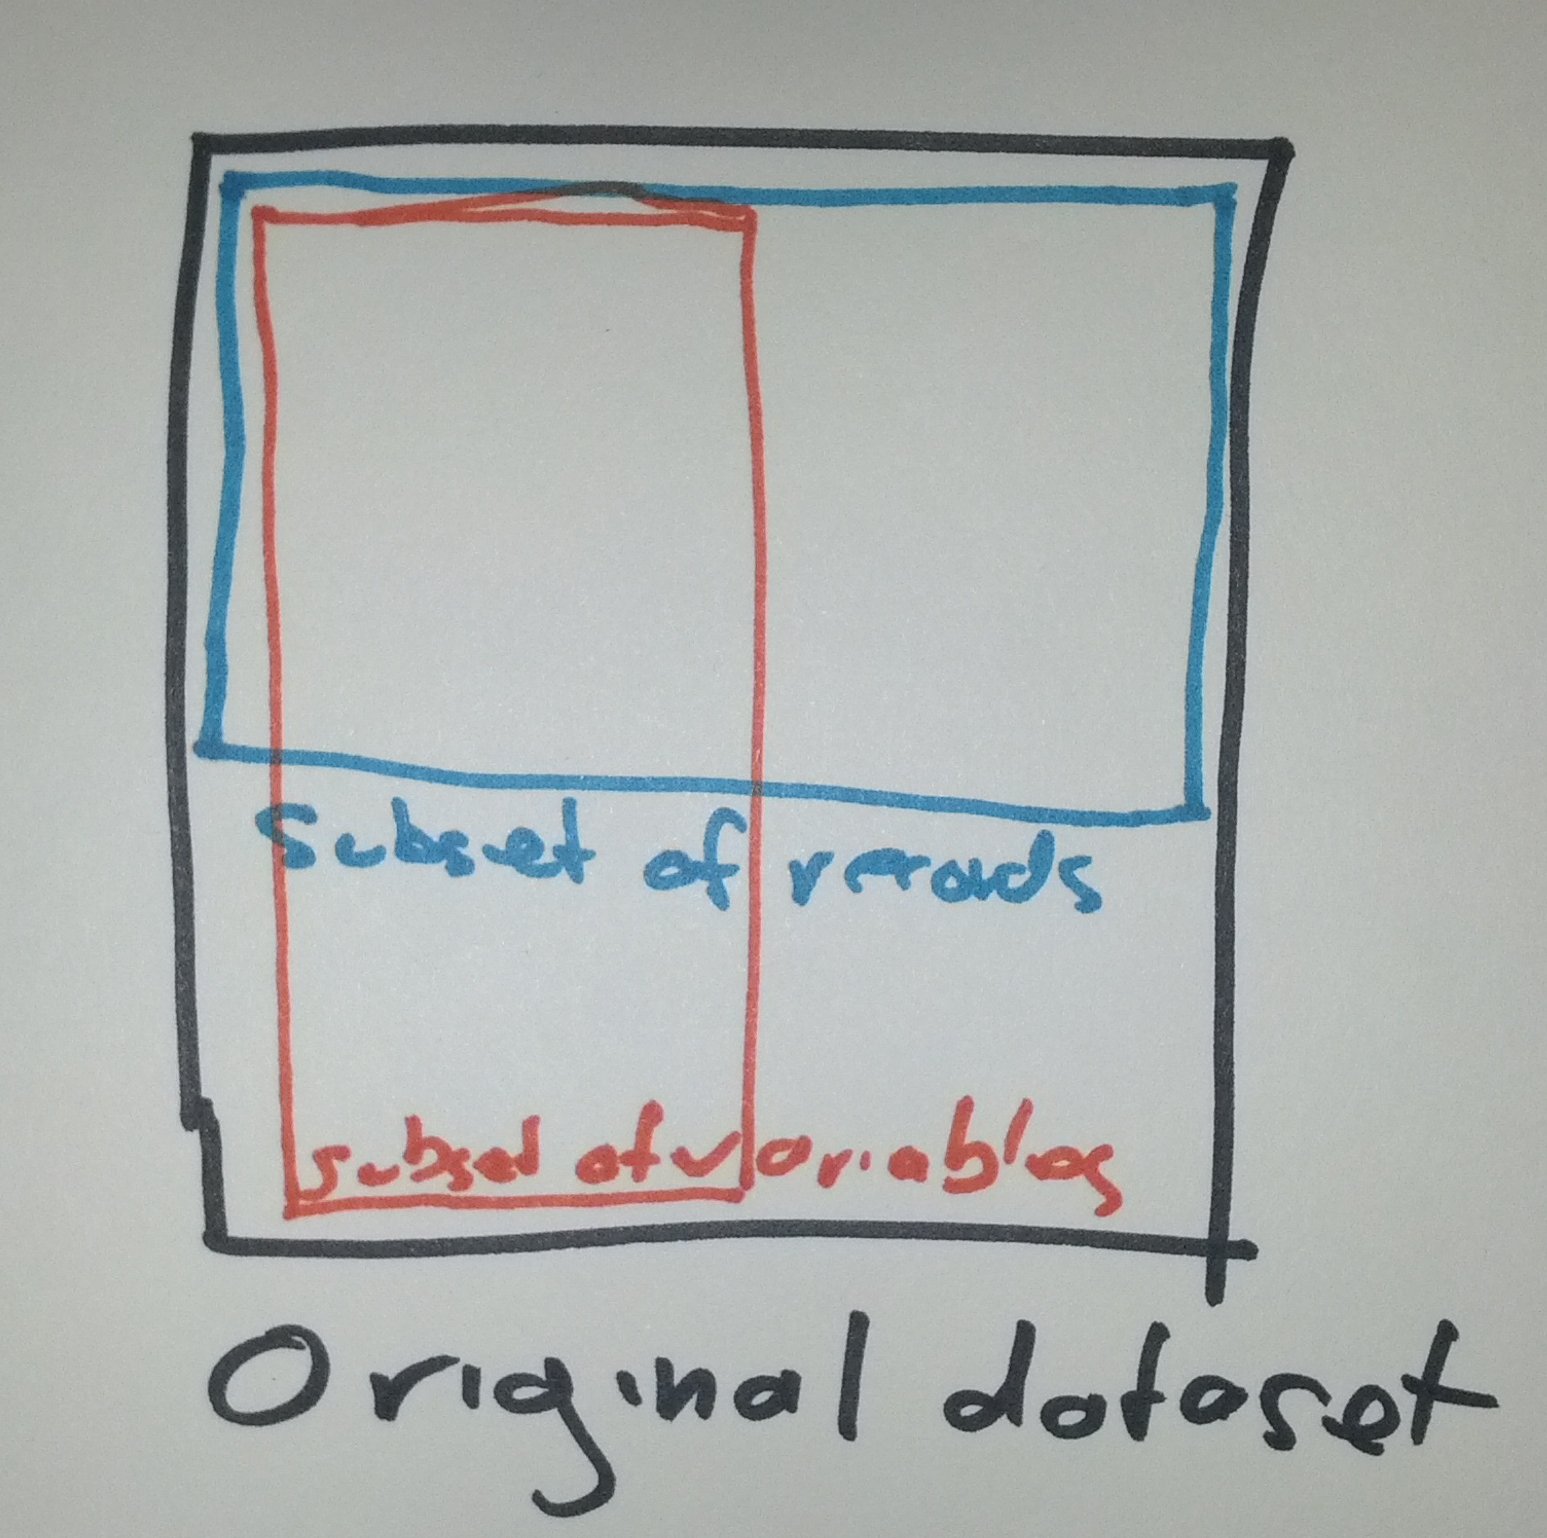 Subset of records
subset of variables
Original dataset